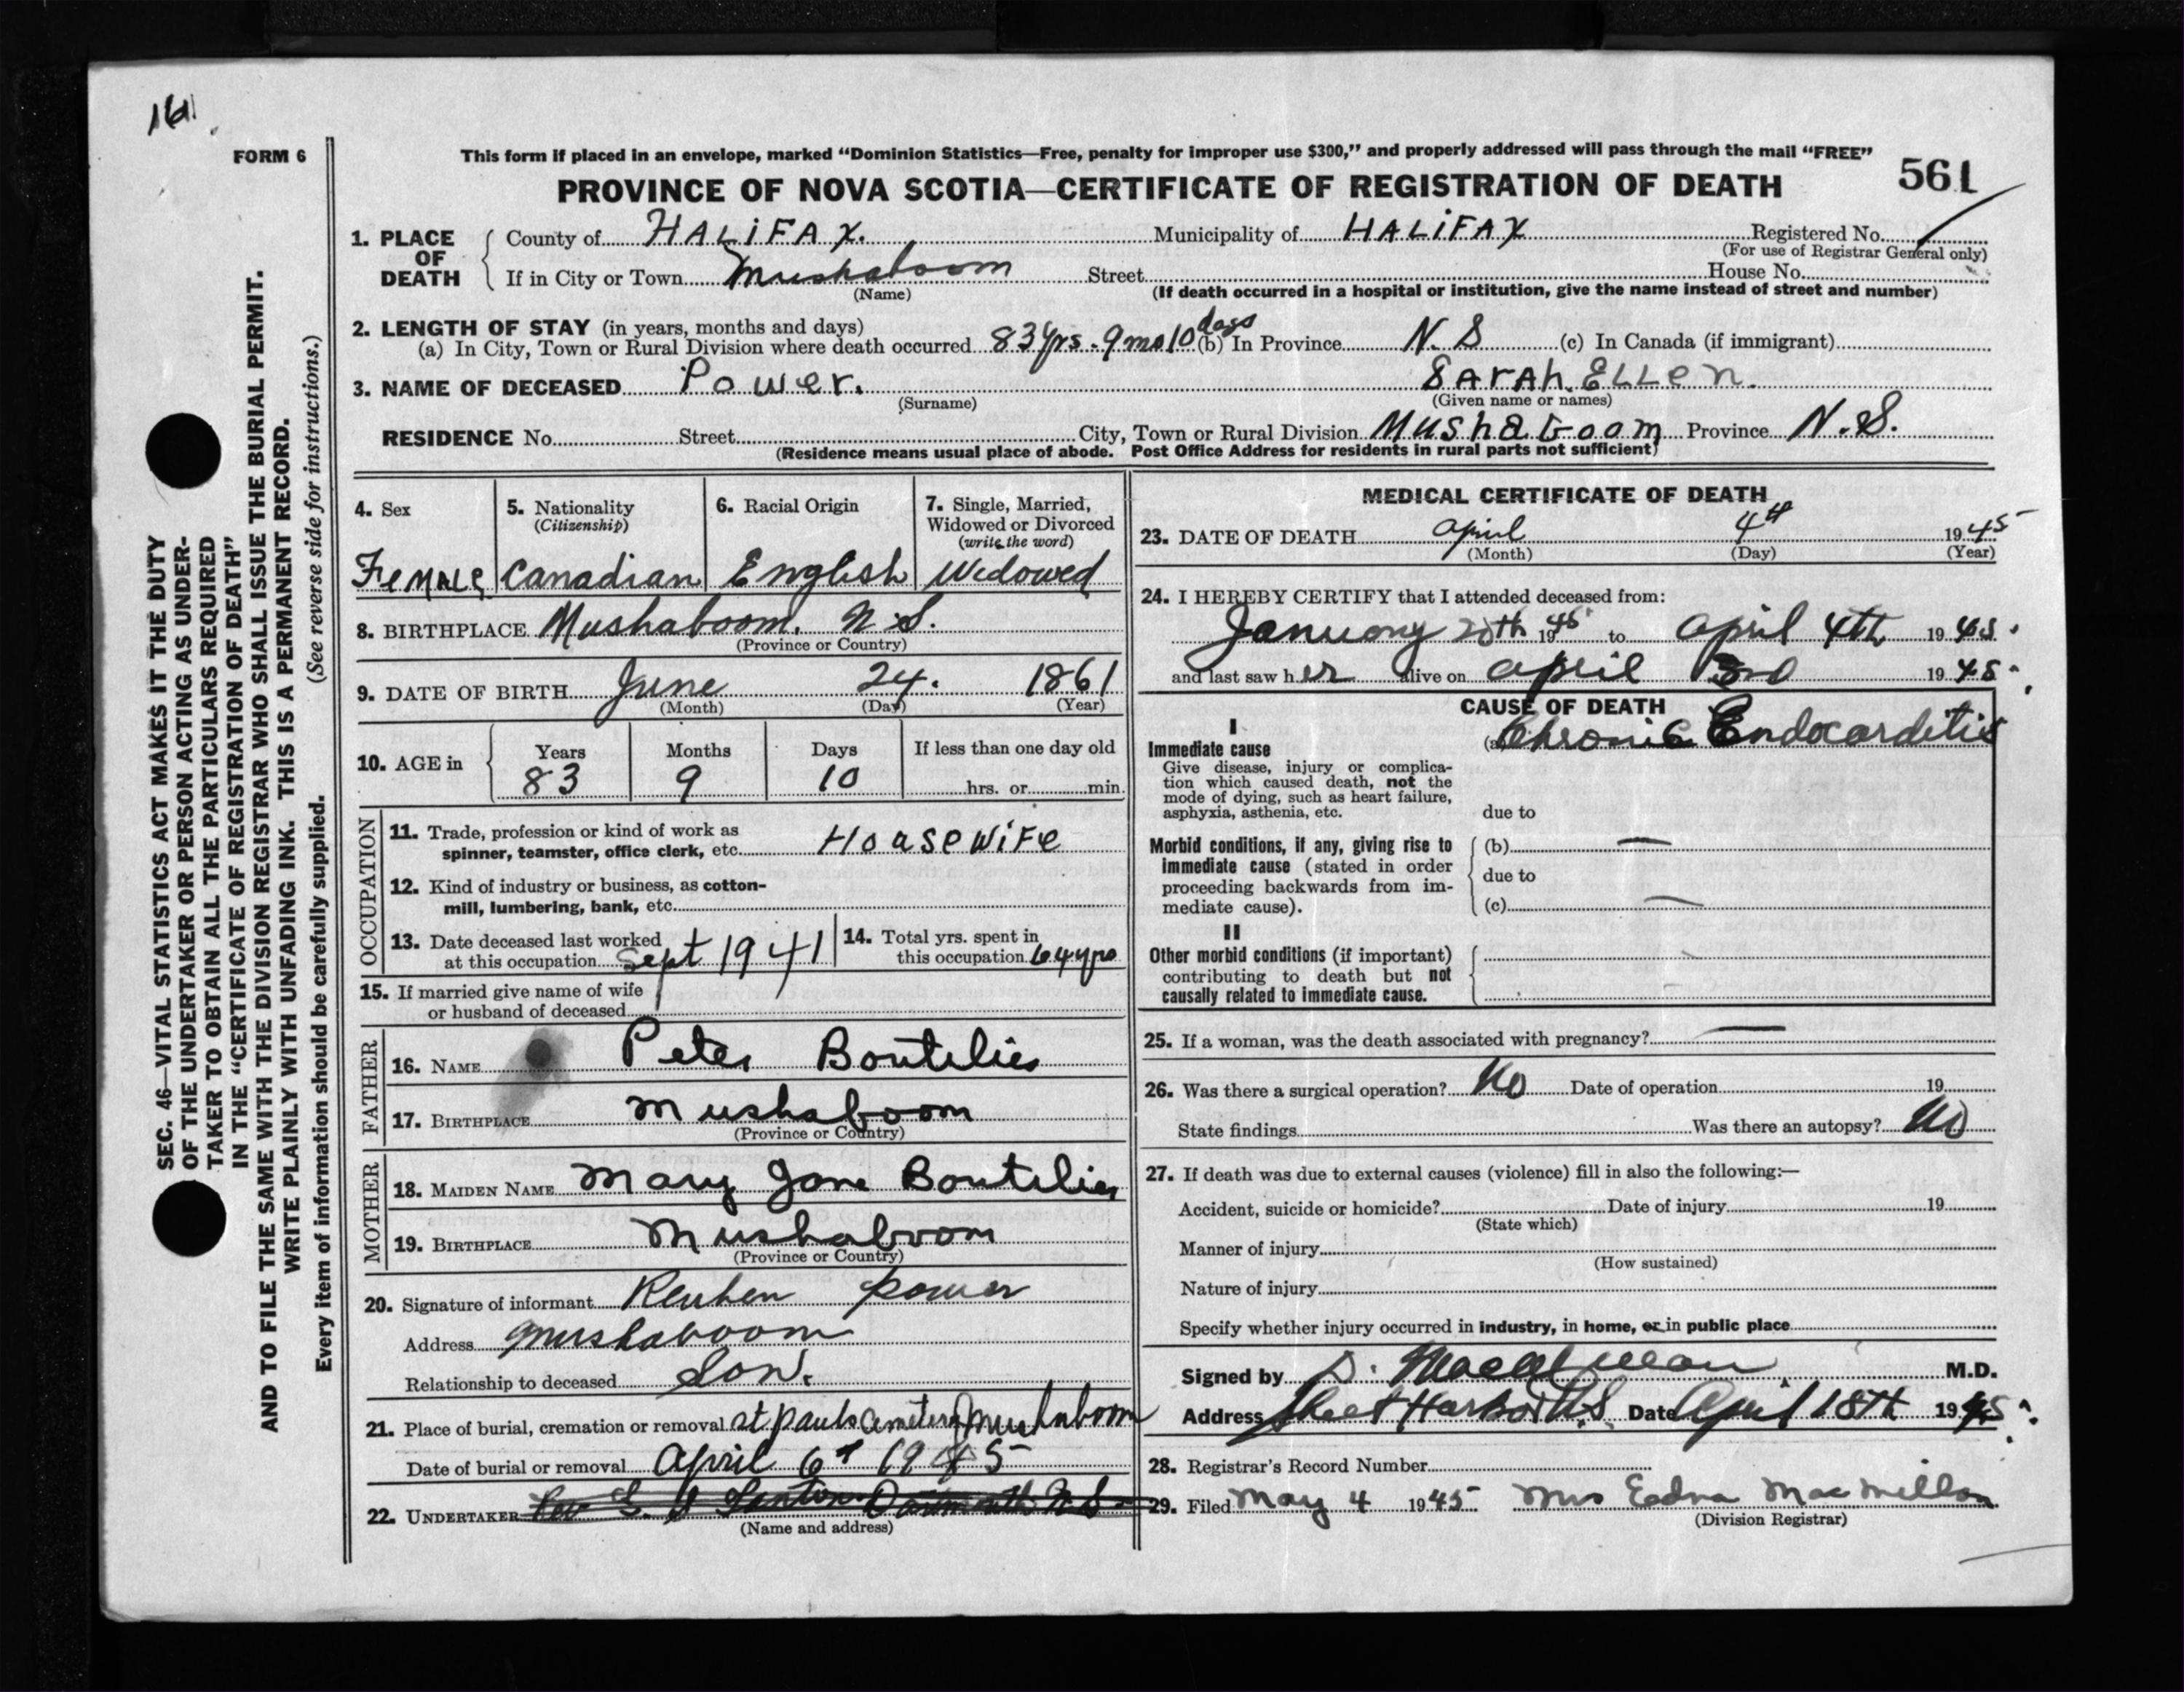 161
FORM 6
This form if placed in an envelope, marked “Dominion Statistics—Free, penalty for improper use $300,” and properly addressed will pass through the mail “FREE”
PROVINCE OF NOVA SCOTIA—CERTIFICATE OF REGISTRATION OF DEATH
561
1. PLACE OF DEATH
County of HALiFAX. Municipality of HALiFAX Registered No.
(For use of Registrar General only)
If in City or Town Mushaboom Street House No.
(Name) (If death occurred in a hospital or institution, give the name instead of street and number)
2. LENGTH OF STAY (in years, months and days)
(a) In City, Town or Rural Division where death occurred 83 yrs. 9 mo 10 days (b) In Province N. S (c) In Canada (if immigrant)
3. NAME OF DECEASED Power. SArAh. ELLen.
(Surname) (Given name or names)
RESIDENCE No. Street City, Town or Rural Division Mushaboom Province N. S.
(Residence means usual place of abode. Post Office Address for residents in rural parts not sufficient)
4. Sex
Female
5. Nationality
(Citizenship)
Canadian
6. Racial Origin
English
7. Single, Married,
Widowed or Divorced
(write the word)
Widowed
8. BIRTHPLACE Mushaboom. N. S.
(Province or Country)
9. DATE OF BIRTH June 24. 1861
(Month) (Day) (Year)
10. AGE in
Years Months Days If less than one day old
83 9 10 hrs. or min.
OCCUPATION
11. Trade, profession or kind of work as
spinner, teamster, office clerk, etc. HousewiFe
12. Kind of industry or business, as cotton-
mill, lumbering, bank, etc.
13. Date deceased last worked
at this occupation Sept 1941
14. Total yrs. spent in
this occupation 64 yrs
15. If married give name of wife
or husband of deceased
FATHER
16. NAME Peter Boutilier
17. BIRTHPLACE Mushaboom
(Province or Country)
MOTHER
18. MAIDEN NAME Mary Jane Boutilier
19. BIRTHPLACE Mushaboom
(Province or Country)
20. Signature of informant Reuben Power
Address Mushaboom
Relationship to deceased Son.
21. Place of burial, cremation or removal St pauls Cemetery Mushaboom
Date of burial or removal April 6th 1945
22. UNDERTAKER Rev Dartmouth N S
(Name and address)
MEDICAL CERTIFICATE OF DEATH
23. DATE OF DEATH April 4th 1945
(Month) (Day) (Year)
24. I HEREBY CERTIFY that I attended deceased from:
January 20th 1945 to April 4th 1945.
and last saw her alive on April 3rd 1945.
CAUSE OF DEATH
I
Immediate cause
Give disease, injury or complica-
tion which caused death, not the
mode of dying, such as heart failure,
asphyxia, asthenia, etc.
(a) Chronic Endocarditis
due to
Morbid conditions, if any, giving rise to
immediate cause (stated in order
proceeding backwards from im-
mediate cause).
(b) —
due to
(c) —
II
Other morbid conditions (if important)
contributing to death but not
causally related to immediate cause.
25. If a woman, was the death associated with pregnancy? —
26. Was there a surgical operation? No Date of operation 19
State findings Was there an autopsy? No
27. If death was due to external causes (violence) fill in also the following:—
Accident, suicide or homicide? Date of injury 19
(State which)
Manner of injury
(How sustained)
Nature of injury
Specify whether injury occurred in industry, in home, or in public place
Signed by D. M.D.
Address Sheet Harbor N.S. Date April 18th 1945.
28. Registrar's Record Number
29. Filed May 4 1945 Mrs Edna MacMillan
(Division Registrar)
SEC. 46—VITAL STATISTICS ACT MAKES IT THE DUTY
OF THE UNDERTAKER OR PERSON ACTING AS UNDER-
TAKER TO OBTAIN ALL THE PARTICULARS REQUIRED
IN THE “CERTIFICATE OF REGISTRATION OF DEATH”
AND TO FILE THE SAME WITH THE DIVISION REGISTRAR WHO SHALL ISSUE THE BURIAL PERMIT.
WRITE PLAINLY WITH UNFADING INK. THIS IS A PERMANENT RECORD.
Every item of information should be carefully supplied. (See reverse side for instructions.)